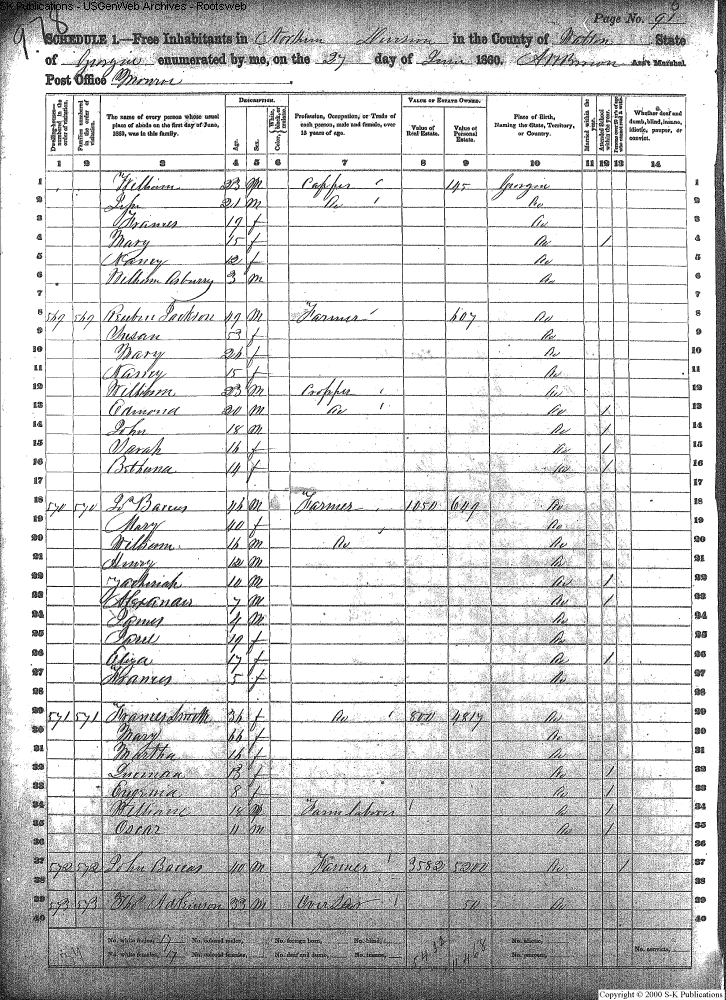 S-K Publications - USGenWeb Archives - Rootsweb
978
Page No. 91
SCHEDULE 1.—Free Inhabitants in Northern Division in the County of Walton State
of Georgia enumerated by me, on the 27 day of June 1860. Ass't Marshal.
Post Office Monroe
DESCRIPTION. VALUE OF ESTATE OWNED.
Dwelling-houses—numbered in the order of visitation.
Families numbered in the order of visitation.
The name of every person whose usual place of abode on the first day of June, 1860, was in this family.
Age.
Sex.
Color, White, black, or mulatto.
Profession, Occupation, or Trade of each person, male and female, over 15 years of age.
Value of Real Estate.
Value of Personal Estate.
Place of Birth, Naming the State, Territory, or Country.
Married within the year.
Attended School within the year.
Whether deaf and dumb, blind, insane, idiotic, pauper, or convict.
1 2 3 4 5 6 7 8 9 10 11 12 13 14
1 William 23 M 145 Georgia 1
2 21 M Do Do 2
3 Frances 19 f Do 3
4 Mary 15 f Do 1 4
5 Nancy 12 f Do 5
6 William Asburry 3 M Do 6
7 7
8 569 569 Reuben Jackson 49 M Farmer 607 Do 8
9 Susan 53 f Do 9
10 Mary 26 f Do 10
11 Nancy 15 f Do 11
12 23 M Cropper Do 12
13 Edmond 20 M Do Do 1 13
14 John 18 M Do 1 14
15 Sarah 16 f Do 1 15
16 Bethena 14 f Do 1 16
17 17
18 570 570 46 M Farmer 1050 649 Do 18
19 Mary 40 f Do 19
20 William 16 M Do Do 20
21 Henry 12 M Do 21
22 Zachariah 10 M Do 1 22
23 Alexander 7 M Do 1 23
24 James 4 M Do 24
25 19 f Do 25
26 Eliza 17 f Do 1 26
27 Frances 5 f Do 27
28 28
29 571 571 Frances Smith 36 f Do 800 4817 Do 29
30 Mary 66 f Do 30
31 Martha 16 f Do 31
32 Lucinda 13 f Do 1 32
33 Eugenia 8 f Do 1 33
34 William 18 M Farm laborer Do 1 34
35 Oscar 11 M Do 1 35
36
37 572 572 John 40 M Farmer 3582 5200 Do 1 37
38
39 573 573 Thos Adkinson 33 M Over Sear 50 Do 39
40 40
No. white males, 17 No. colored males, No. foreign born, No. blind, No. idiotic,
No. white females, 17 No. colored females, No. deaf and dumb, No. insane, No. paupers, No. convicts,
Copyright © 2000 S-K Publications